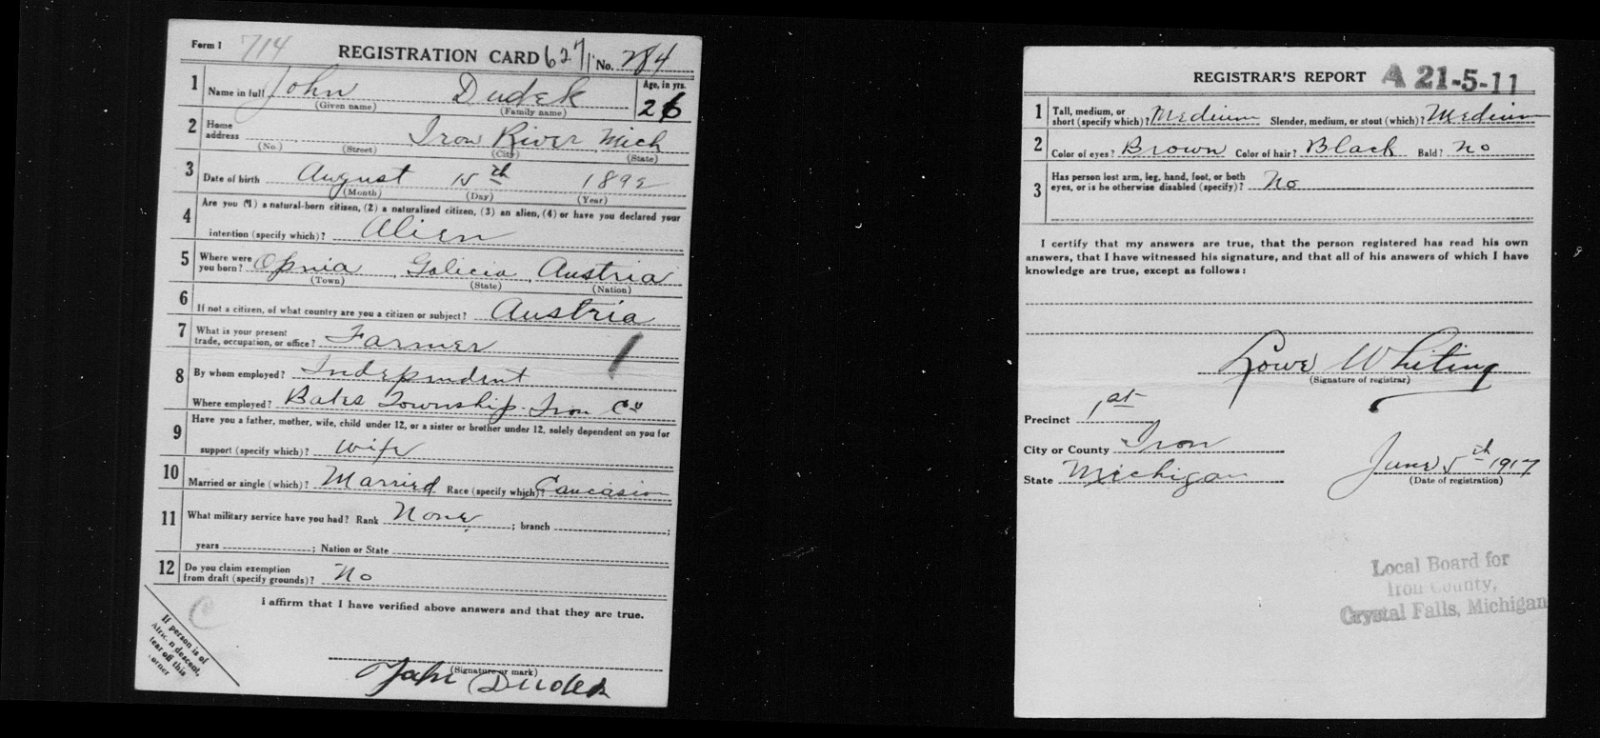 Form 1 714 REGISTRATION CARD 627 No. 284
1 Name in full John Dudek Age, in yrs.
(Given name) (Family name) 26
2 Home address Iron River Mich
(No.) (Street) (City) (State)
3 Date of birth August 15th 1892
(Month) (Day) (Year)
4 Are you (1) a natural-born citizen, (2) a naturalized citizen, (3) an alien, (4) or have you declared your
intention (specify which)? Alien
5 Where were you born? Opnia, Galicia, Austria
(Town) (State) (Nation)
6 If not a citizen, of what country are you a citizen or subject? Austria
7 What is your present trade, occupation, or office? Farmer
8 By whom employed? Independent
Where employed? Bates Township. Iron Co
9 Have you a father, mother, wife, child under 12, or a sister or brother under 12, solely dependent on you for
support (specify which)? Wife
10 Married or single (which)? Married Race (specify which)? Caucasion
11 What military service have you had? Rank None ; branch ;
years ; Nation or State
12 Do you claim exemption from draft (specify grounds)? No
I affirm that I have verified above answers and that they are true.
C
If person is of
African descent,
tear off this
corner
(Signature or mark)
John Dudek
REGISTRAR'S REPORT A 21-5-11
1 Tall, medium, or short (specify which)? Medium Slender, medium, or stout (which)? Medium
2 Color of eyes? Brown Color of hair? Black Bald? No
3 Has person lost arm, leg, hand, foot, or both
eyes, or is he otherwise disabled (specify)? No
I certify that my answers are true, that the person registered has read his own
answers, that I have witnessed his signature, and that all of his answers of which I have
knowledge are true, except as follows:
Lowe Whiting
(Signature of registrar)
Precinct 1st
City or County Iron
State Michigan June 5th 1917
(Date of registration)
Local Board for
Iron County,
Crystal Falls, Michigan